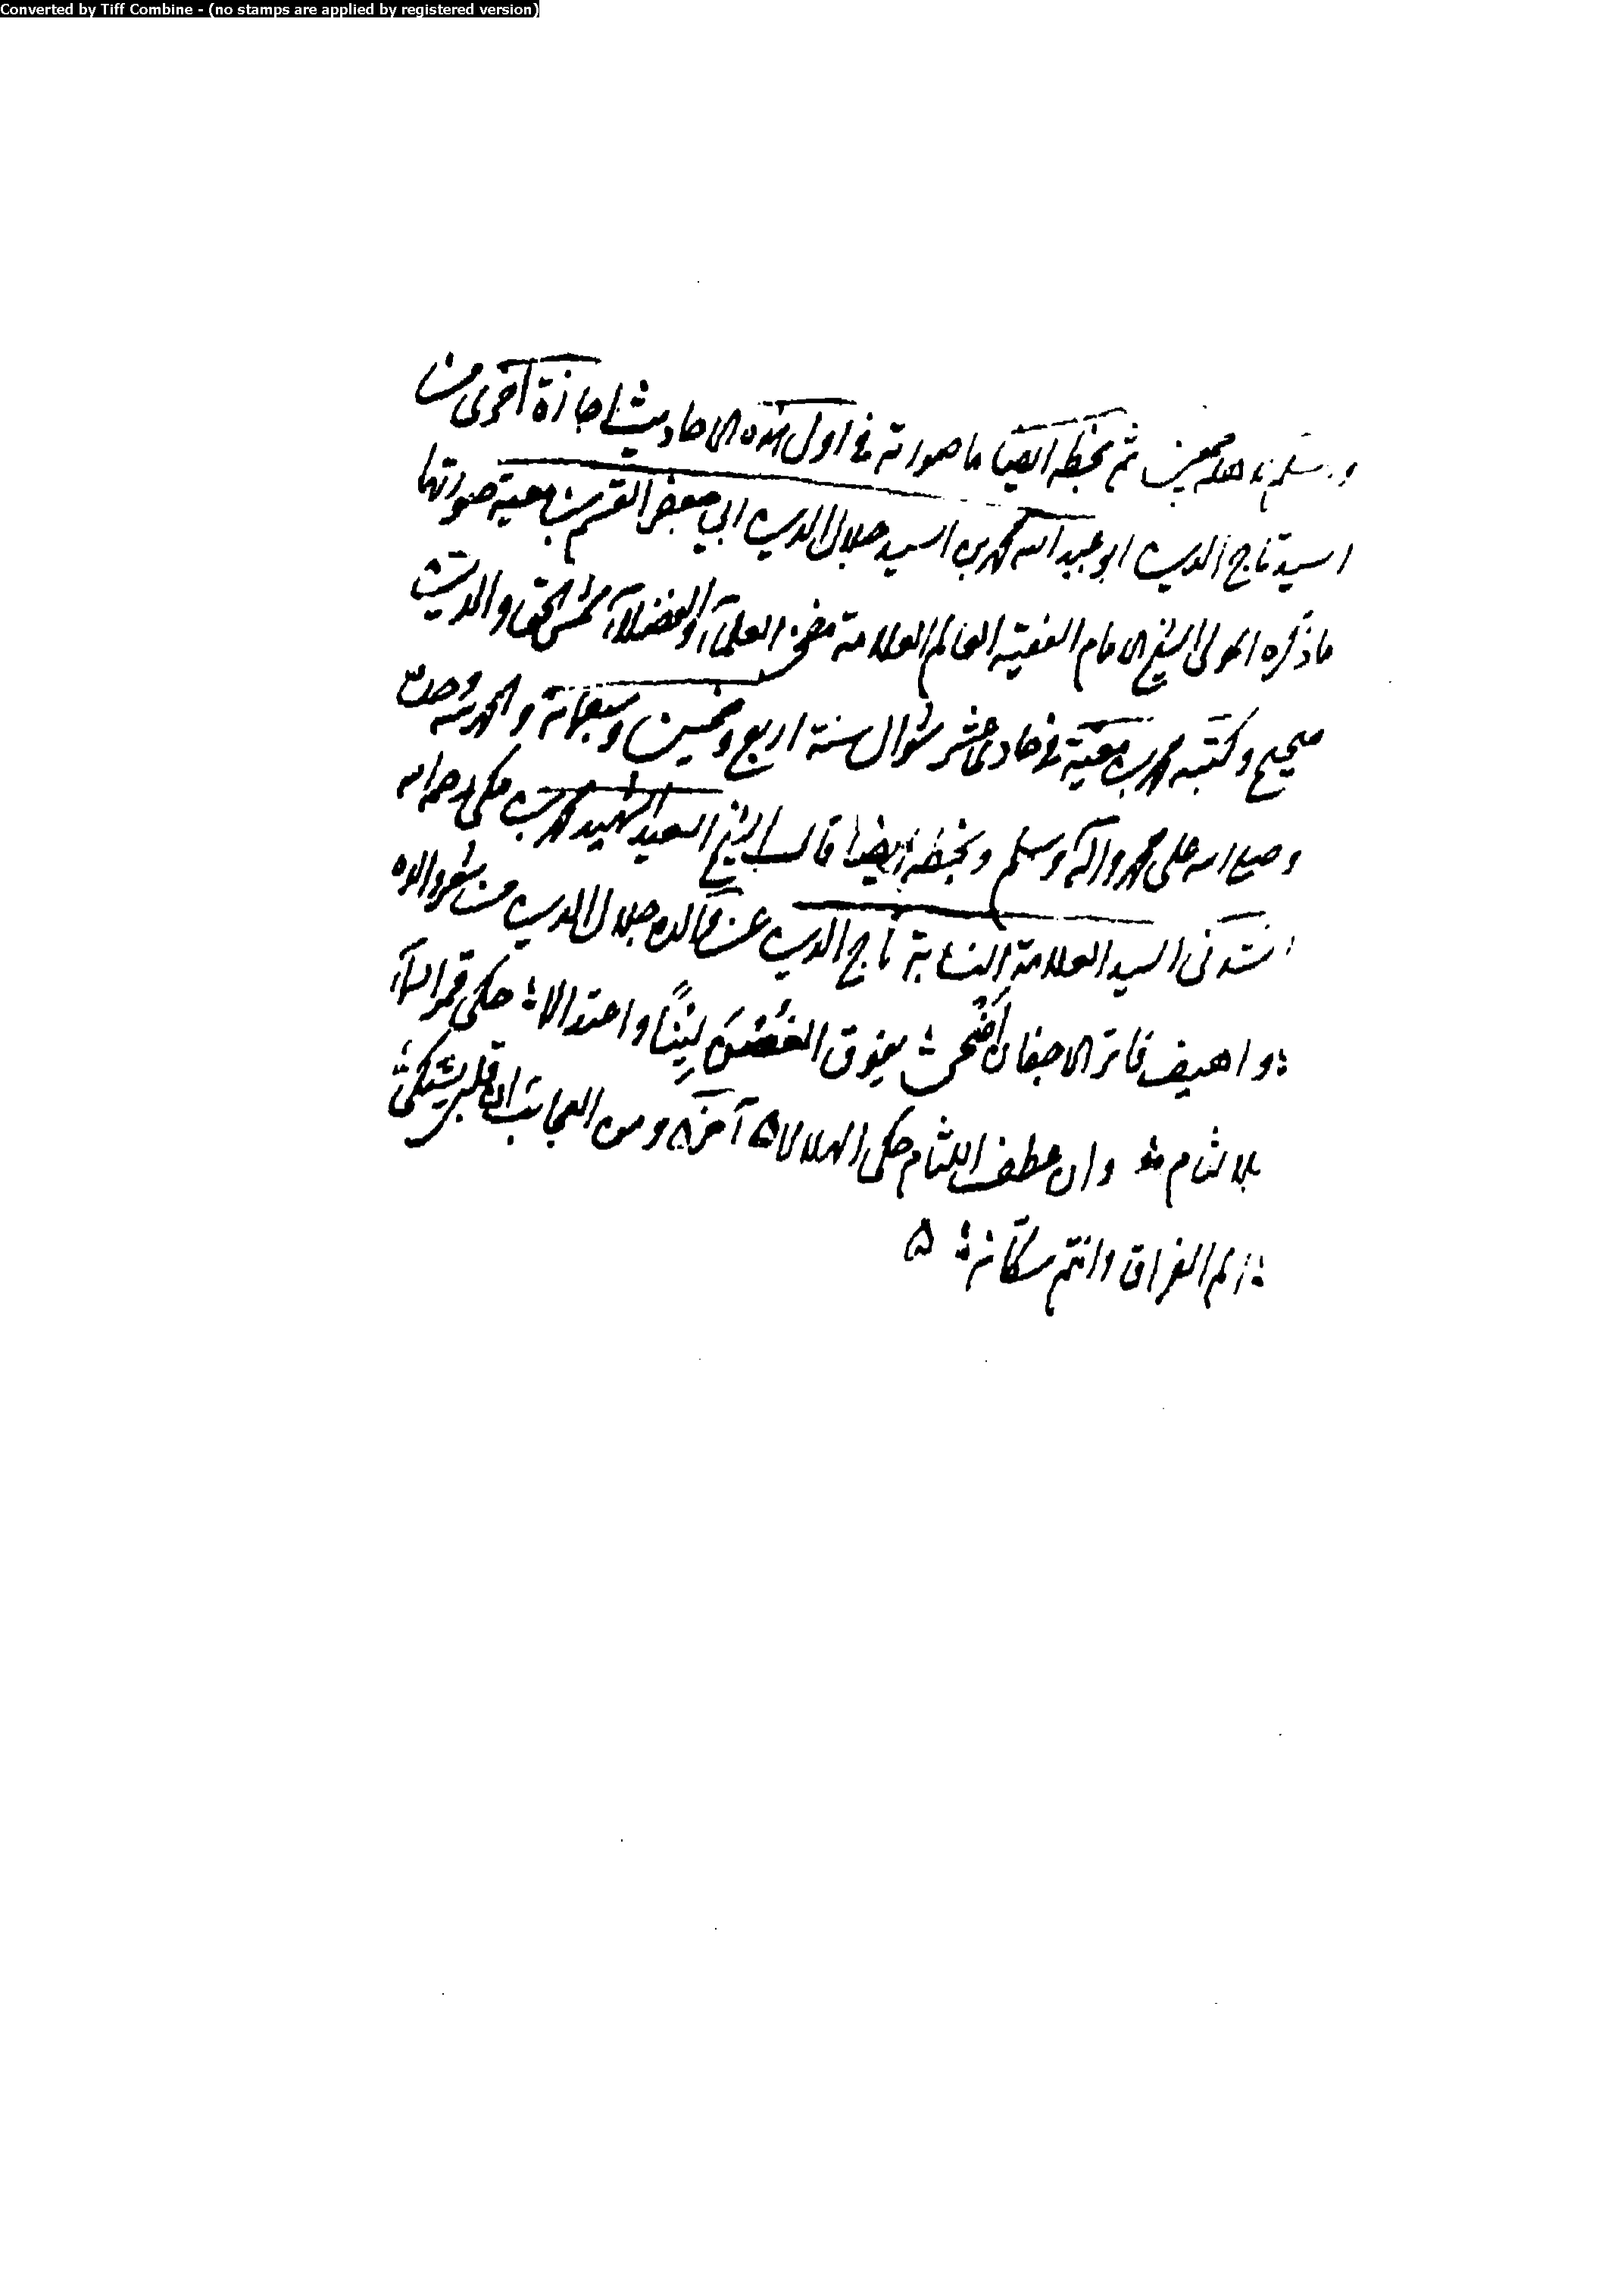 Converted by Tiff Combine - (no stamps are applied by registered version)
وسلم اجمعين ثم بخطه ايضا ما صورته في اول هذه الاحاديث اجازة اخرى من
السيد تاج الدين ابو عبد الله محمد بن السيد جلال الدين ابي جعفر القسم بن معية صورتها
ما ذكره المولى الشيخ الامام الفقيه العالم العلامة مفخر العلمآء والفضلآء شمس الحق والدين
صحيح وكتبه محمد بن معية في حادي عشر شوال سنة اربع وخمسين وسبعمائة والحمد لله وحده
وصلى الله على محمد واله وسلم وبخطه ايضا قال الشيخ السعيد الشهيد محمد بن مكي رحمه الله
انشدني السيد العلامة النسابة تاج الدين عن والده جلال الدين من شعر والده
واهيف فاتر الاجفان اضحى يفوق الغُصْنَ لِينًا واعتدالا حكى قمر السمآء
بلا لثام وان عطف اللثام حكى الهلالا ه آخر ه ومن العجائب ان قلبي يشتكي
الم الفراق وانتم سكّانه ه